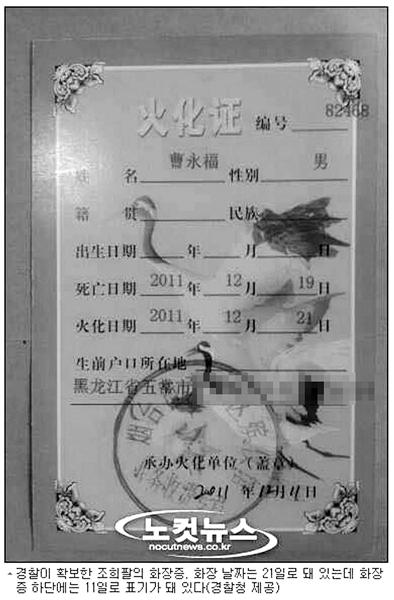 火化证 编号 82468
姓名 曹永福 性别 男
籍贯 民族
出生日期 年 月 日
死亡日期 2011 年 12 月 19 日
火化日期 2011 年 12 月 21 日
生前户口所在地
黑龙江省五常市
承办火化单位(盖章)
2011 年 12 月 11 日
烟台
노컷뉴스
nocutnews.co.kr
경찰이 확보한 조희팔의 화장증. 화장 날짜는 21일로 돼 있는데 화장
증 하단에는 11일로 표기가 돼 있다(경찰청 제공)